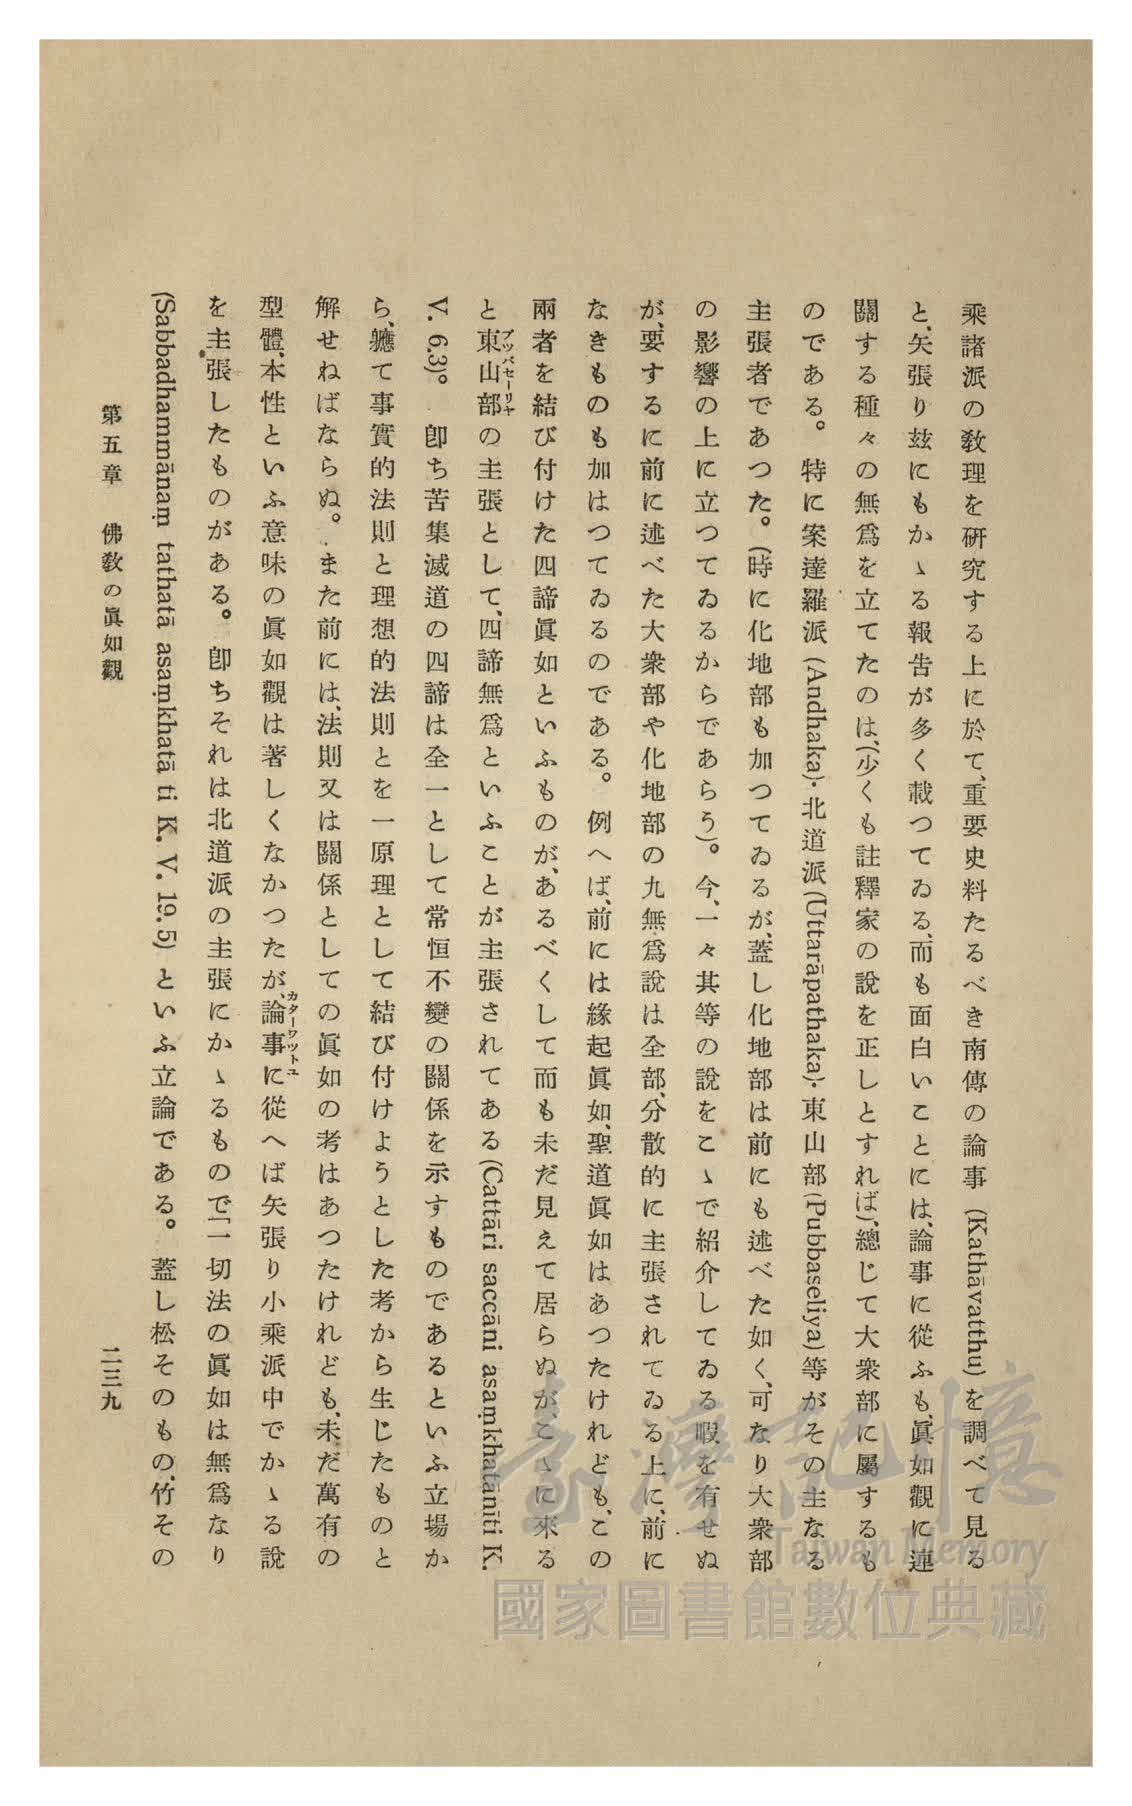 乘諸派の敎理を硏究する上に於て、重要史料たるべき南傳の論事 (Kathāvatthu) を調べて見る
と、矢張り玆にもかゝる報吿が多く載つてゐる、而も面白いことには、論事に從ふも、眞如觀に連
關する種々の無爲を立てたのは、(少くも註釋家の說を正しとすれば)、總じて大衆部に屬するも
のである。特に案達羅派 (Andhaka)・北道派 (Uttarāpathaka)・東山部 (Pubbaseliya) 等がその主なる
主張者であつた。(時に化地部も加つてゐるが、蓋し化地部は前にも述べた如く、可なり大衆部
の影響の上に立つてゐるからであらう)。今、一々其等の說をこゝで紹介してゐる暇を有せぬ
が、要するに前に述べた大衆部や化地部の九無爲說は全部、分散的に主張されてゐる上に、前に
なきものも加はつてゐるのである。例へば、前には緣起眞如、聖道眞如はあつたけれども、この
兩者を結び付けた四諦眞如といふものが、あるべくして而も未だ見えて居らぬが、こゝに來る
と東山部プツバセーリヤの主張として、四諦無爲といふことが主張されてある (Cattāri saccāni asaṃkhatānīti K.
V. 6.3)。卽ち苦集滅道の四諦は全一として常恒不變の關係を示すものであるといふ立場か
ら、軈て事實的法則と理想的法則とを一原理として結び付けようとした考から生じたものと
解せねばならぬ。また前には、法則又は關係としての眞如の考はあつたけれども、未だ萬有の
型體、本性といふ意味の眞如觀は著しくなかつたが、論事カターワツトユに從へば矢張り小乘派中でかゝる說
を主張したものがある。卽ちそれは北道派の主張にかゝるもので「一切法の眞如は無爲なり
(Sabbadhammānaṃ tathatā asaṃkhatā ti K. V. 19. 5) といふ立論である。蓋し松そのもの、竹その
第五章 佛敎の眞如觀
二三九
臺灣記憶
Taiwan Memory
國家圖書館數位典藏